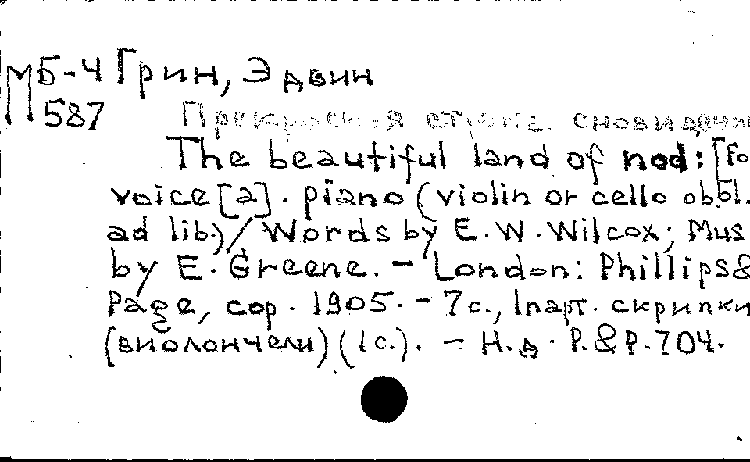 МБ-4 Грин, Эдвин
587 Прекрасная страна сновидений
The beautiful land of nod: [Fo
voice [a]. piano (violin or cello obbl.
ad lib)/ Words by E.W. Wilcox; Mus
by E. Greene. - London: Phillips &
Page, cop. 1905. - 7с., 1 парт. скрипки
(виолончели) (1с.). - Н.д. P.&P. 704.